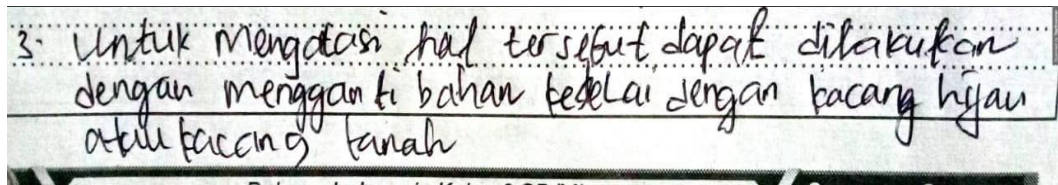 3. Untuk mengatasi hal tersebut dapat dilakukan
dengan mengganti bahan kedelai dengan kacang hijau
atau kacang tanah